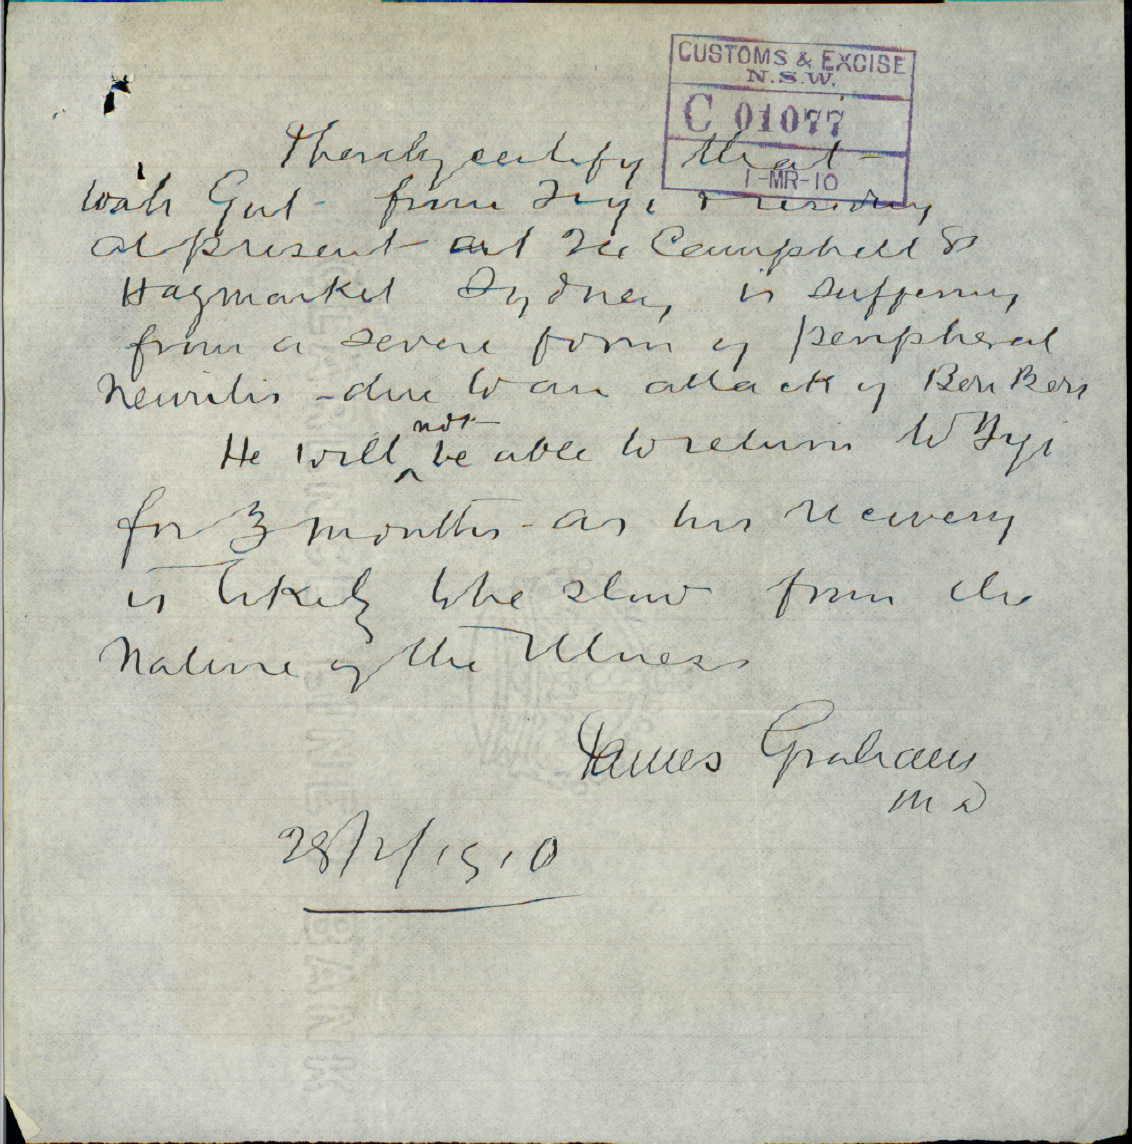 CUSTOMS & EXCISE
N.S.W.
C 01077
1-MR-10
I hereby certify that
Wah Gut from Fiji & residing
at present at Campbell St
Haymarket Sydney, is suffering
from a severe form of peripheral
Neuritis - due to an attack of Beri Beri
He will not be able to return to Fiji
for 3 months - as his recovery
is likely to be slow from the
Nature of the Illness
James Graham
MD
28/2/1910